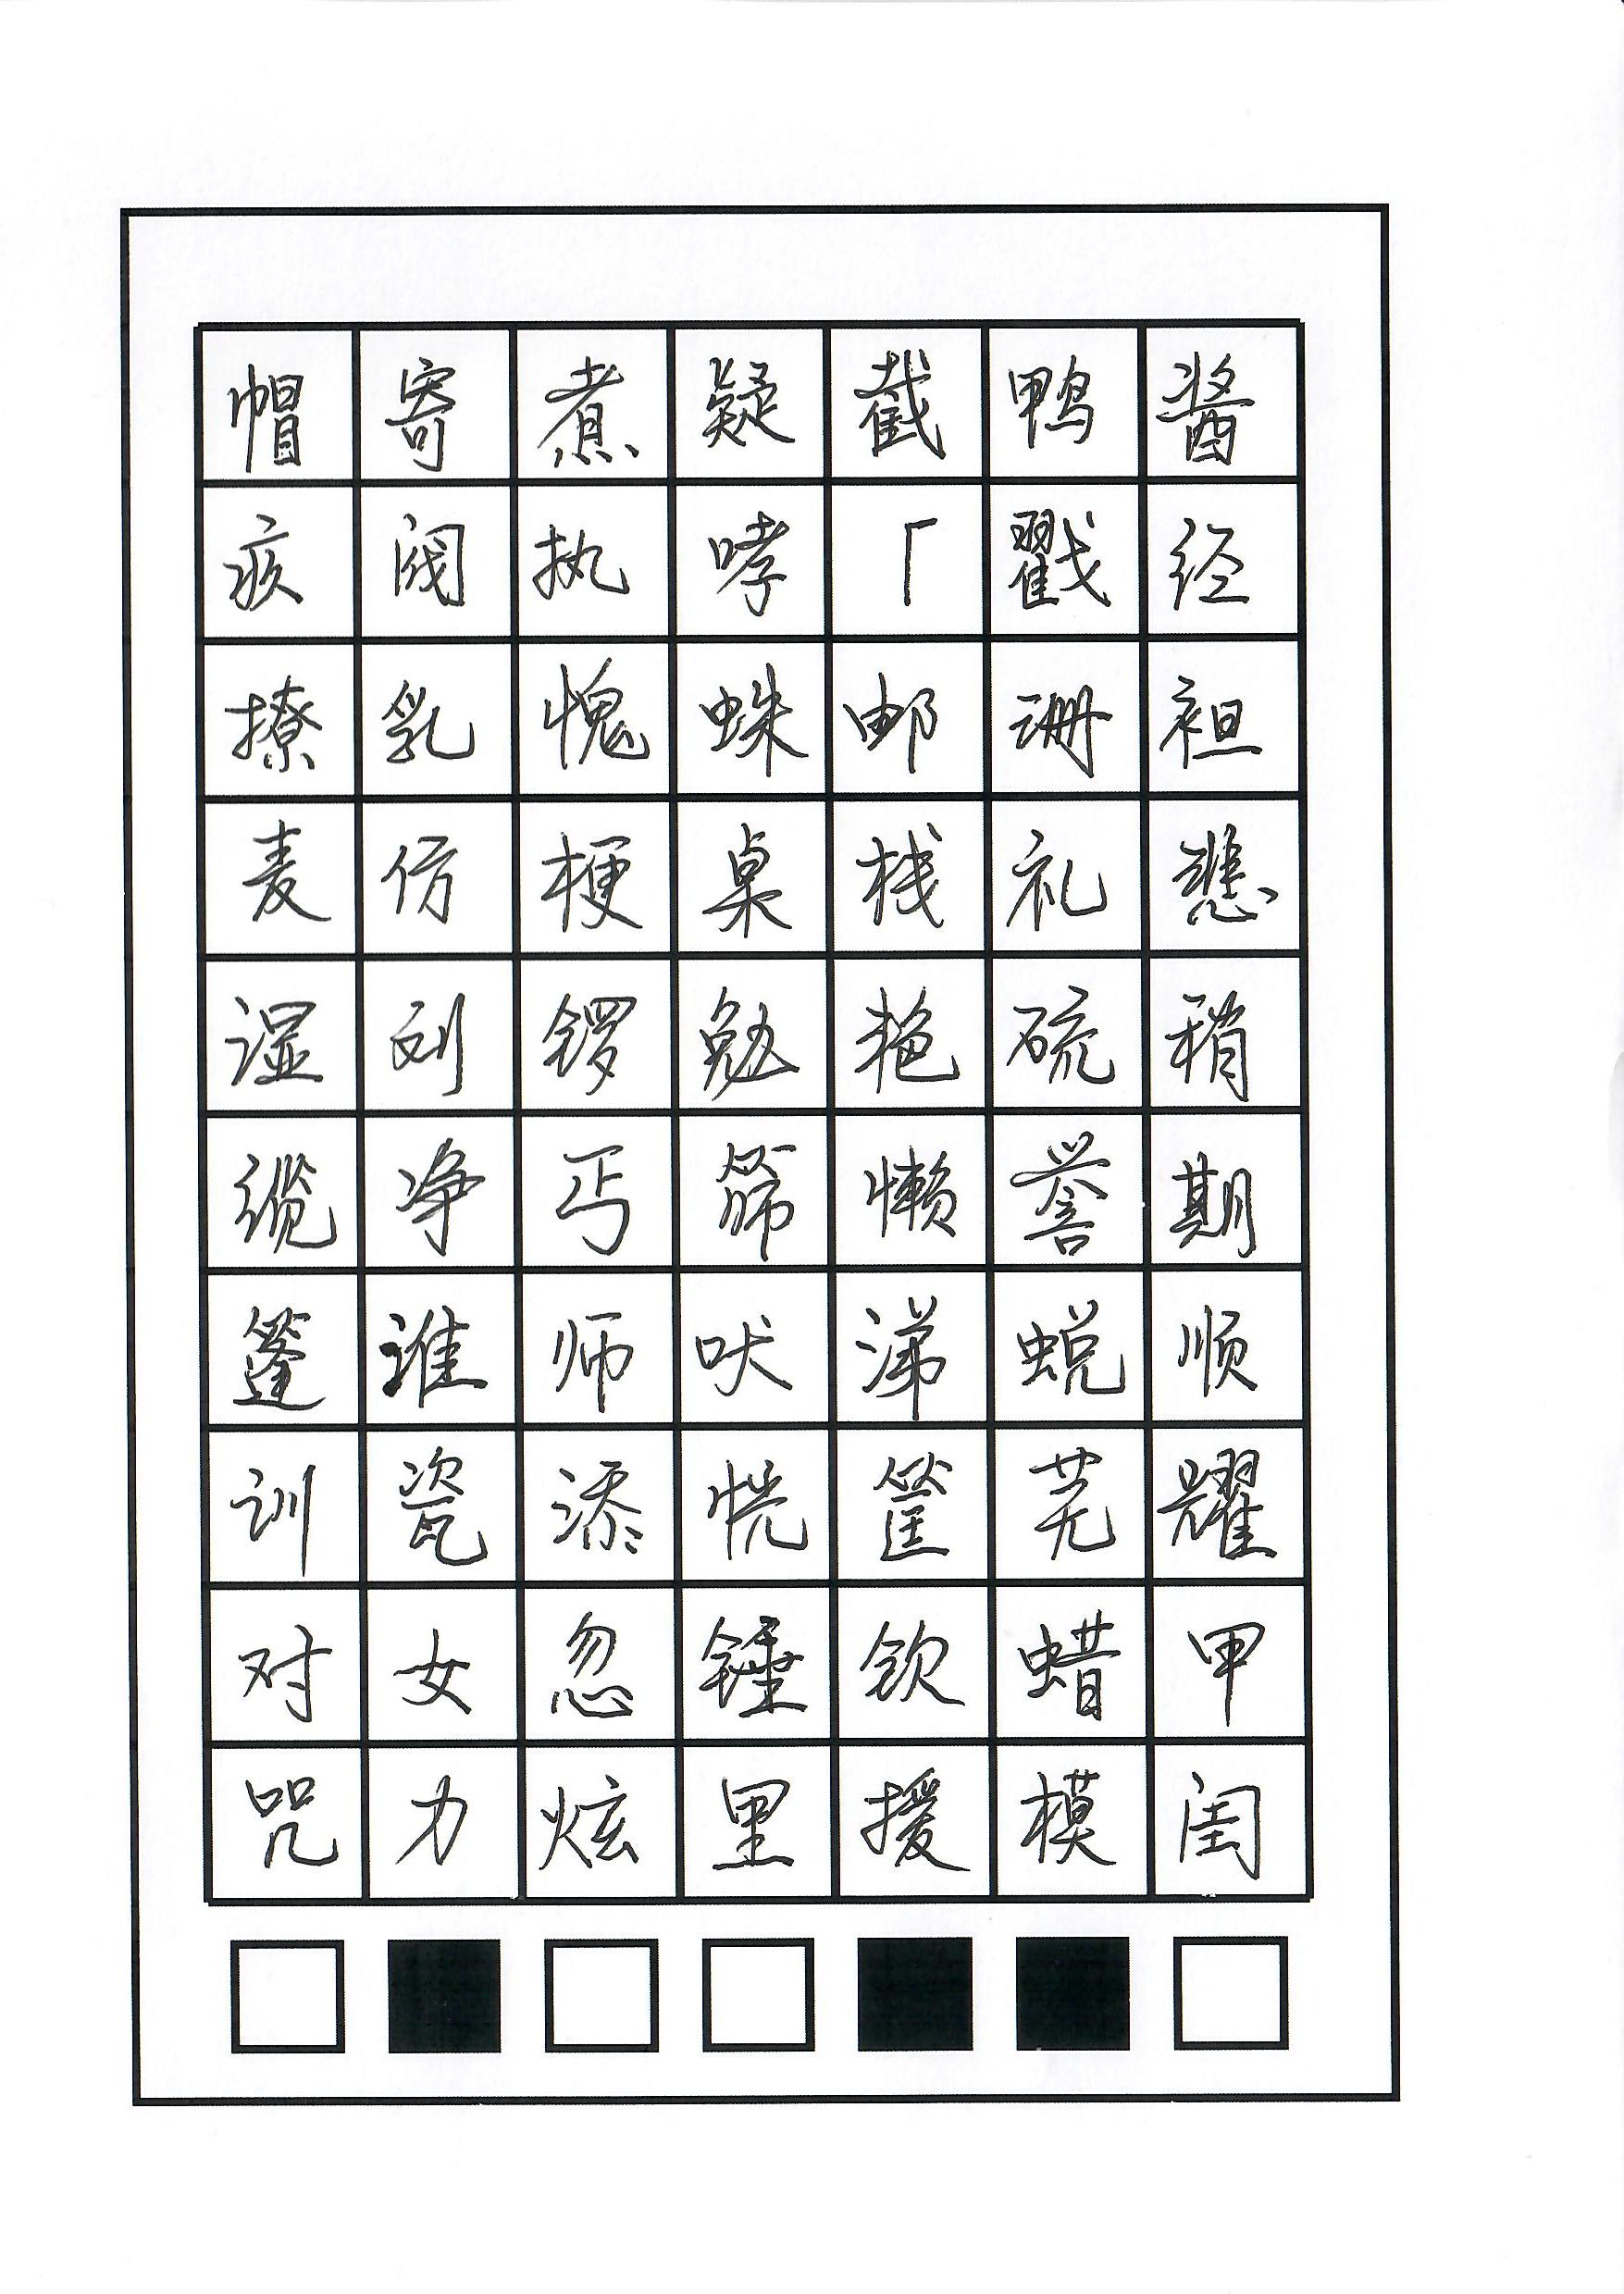 帽寄煮疑截鸭酱
疾阀执哮厂戳经
撩乳愧蛛邮珊袒
麦仿梗桌栈礼悲
湿刘锣勉艳硫稍
缆净丐筛懒誉期
篷谁师吠涕蜕顺
训瓷添恍筐芜耀
对女忽锤钦蜡甲
咒力炫里援模闺